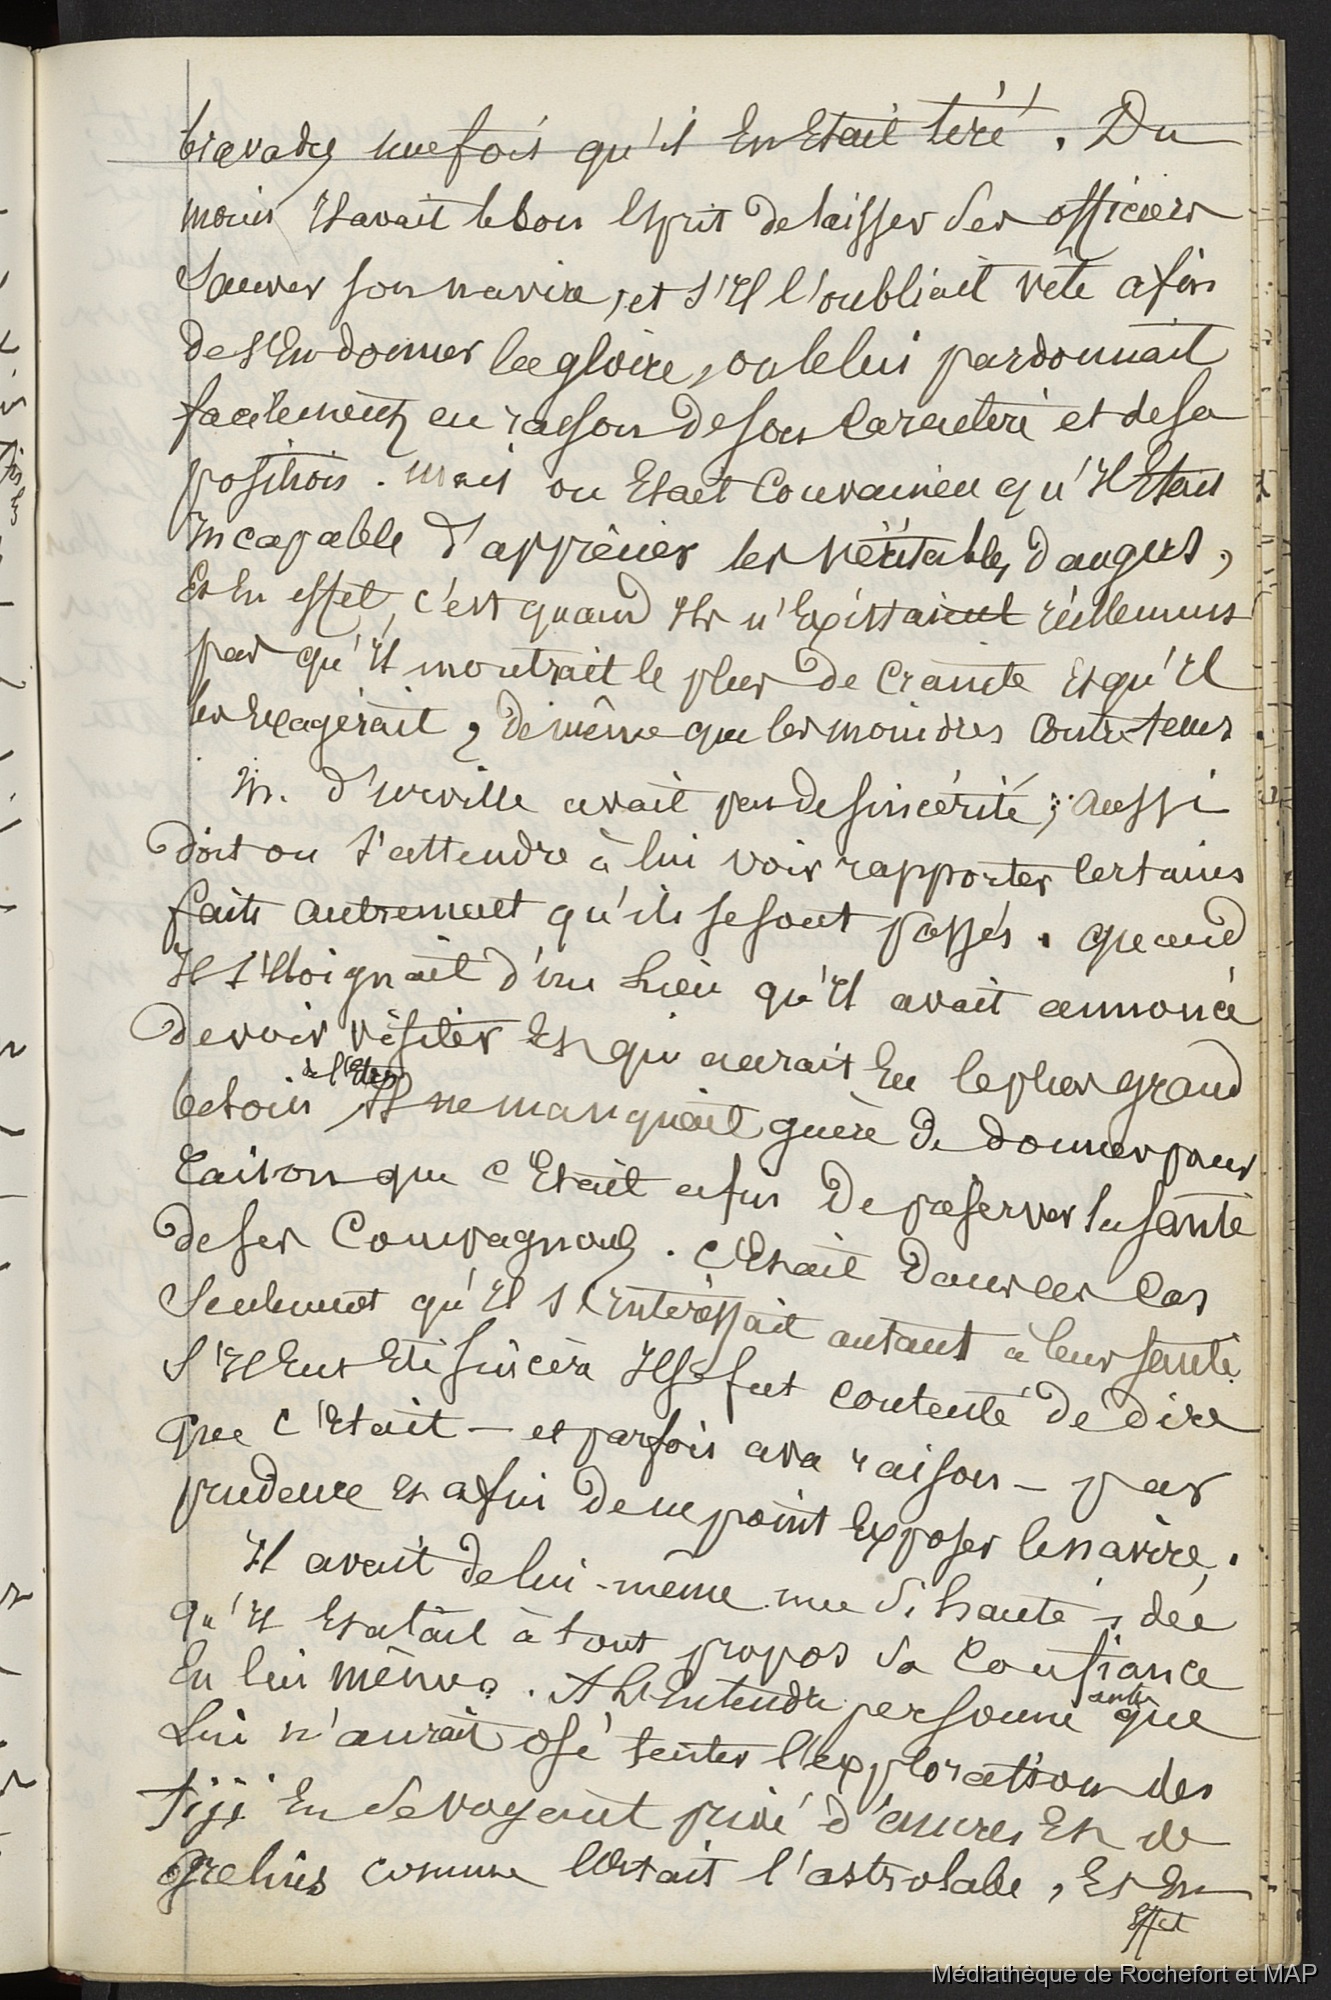 bravades une fois qu'il En Etait tiré. Du
moins Il avait le bon Esprit de laisser ses officiers
Sauver son navire, et s'Il l'oubliait vite afin
de s'En donner la gloire, on le lui pardonnait
facilement en raison de son Caractère et de sa
position. Mais on Etait Convaincu qu'Il Etait
Incapable d'apprécier les véritables dangers,
Et En effet, c'est quand Ils n'Existaient réellement
pas qu'Il montrait le plus de Crainte Et qu'Il
les Exagérait, de même que les moindres Contre-tems
M. d'urville avait peu de sincérité; aussi
doit on s'attendre à lui voir rapporter Certains
faits autrement qu'ils se sont passés. quand
Il s'Eloignait d'un lieu qu'Il avait annoncé
devoir visiter Et qui aurait Eu le plus grand
besoin de l'Etre Il ne manquait guère de donner pour
raison que c'Etait afin De préserver la santé
de ses Compagnons. C'Etait dans ces Cas
Seulement qu'Il s'Intéressait autant à leur santé.
S'Il Eut Eté sincère Il se fut contenté de dire
que C'Etait — et parfois avec raison — par
prudence Et afin de ne point Exposer le navire.
Il avait de lui-même une si haute idée
qu'Il Etalait à tout propos sa Confiance
En lui même. A l'Entendre personne autre que
Lui n'aurait osé tenter l'exploration des
fiji En se voyant privé d'ancres Et de
grelins comme l'Etait l'astrolabe, Et En
Effet
Médiathèque de Rochefort et MAP